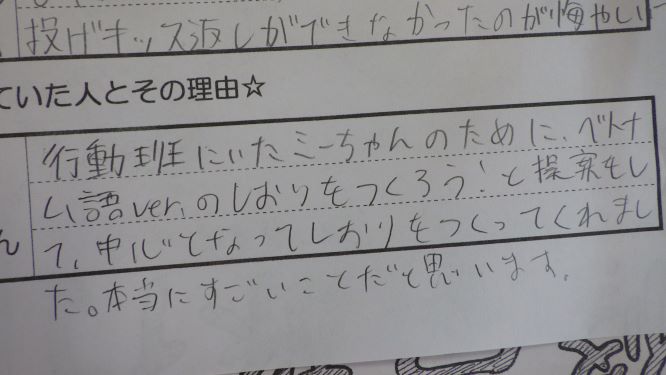 投げキッス返しができなかったのが悔やしい
ていた人とその理由☆
行動班にいたミーちゃんのために、ベトナ
ん
ム語ver.のしおりをつくろう！と提案をし
て、中心となってしおりをつくってくれまし
た。本当にすごいことだと思います。